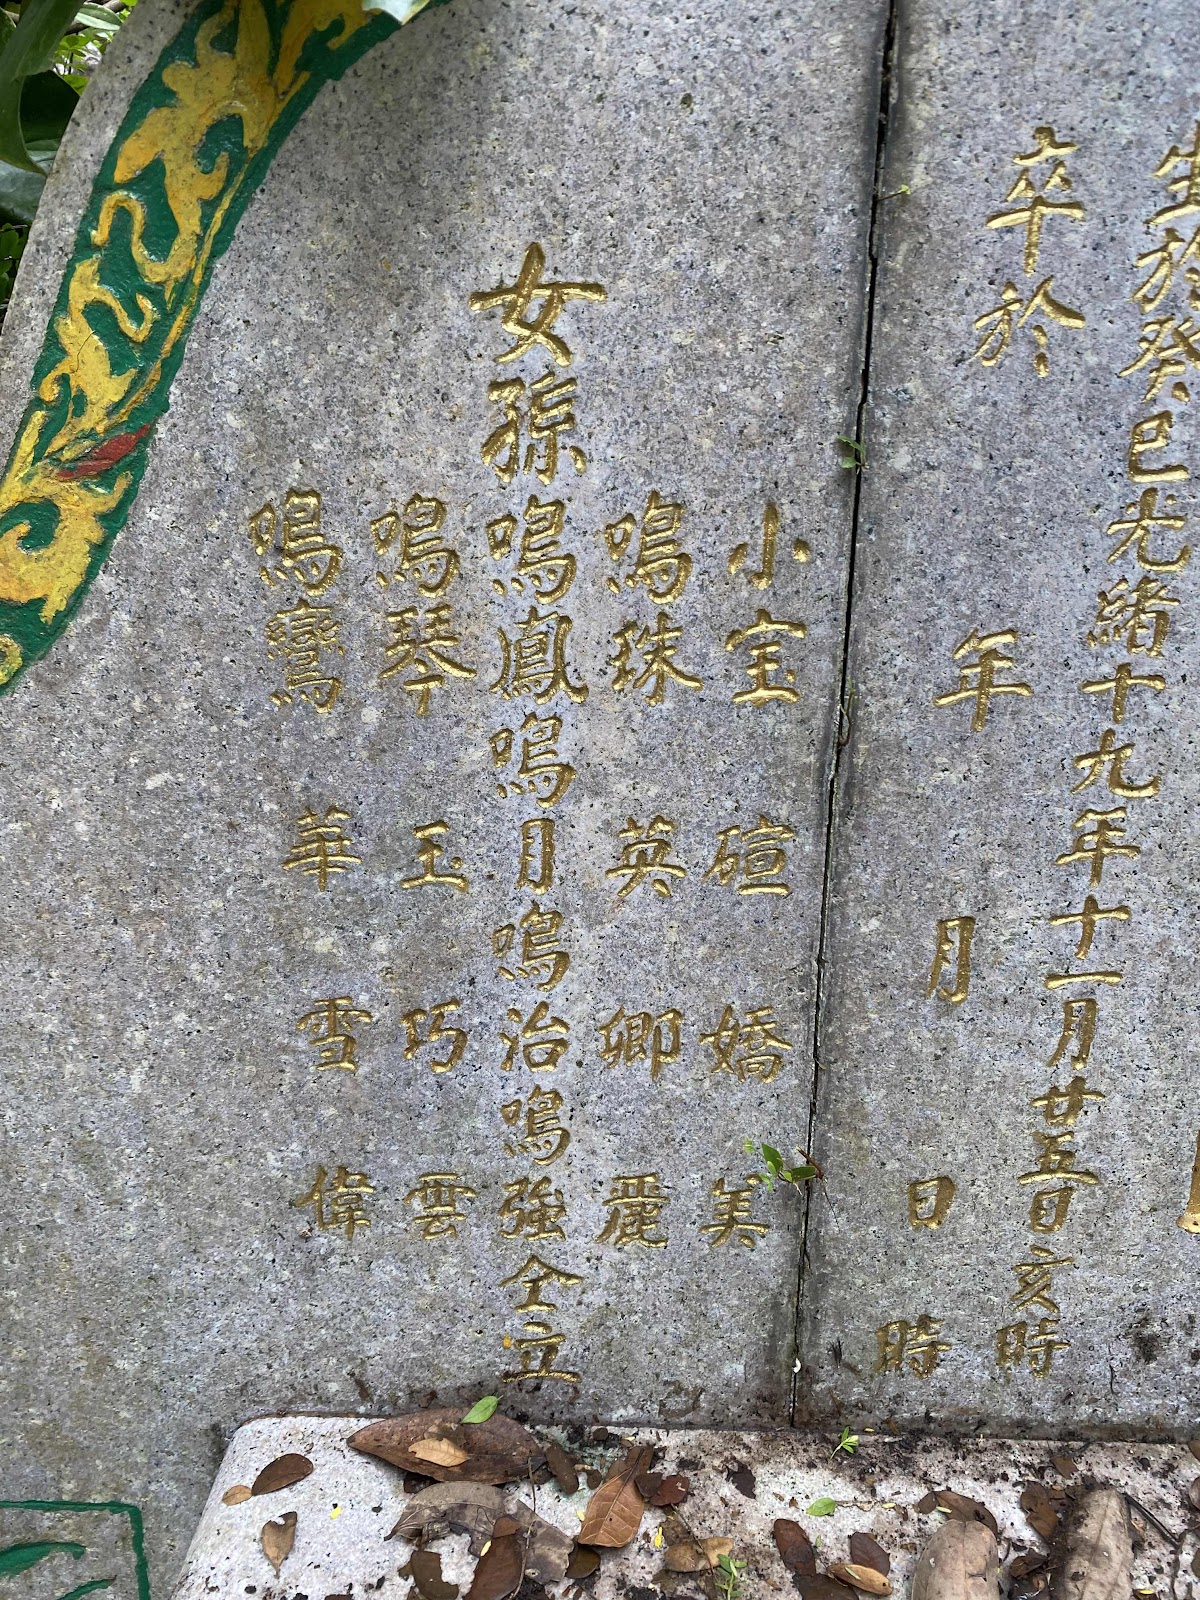 生於癸巳光緒十九年十一月廿五日亥時
卒於 年 月 日 時
小宝 碹 嬌 美
鳴珠 英 卿 麗
女孫鳴鳳鳴月鳴治鳴強仝立
鳴琴 玉 巧 雲
鳴鸞 華 雪 偉